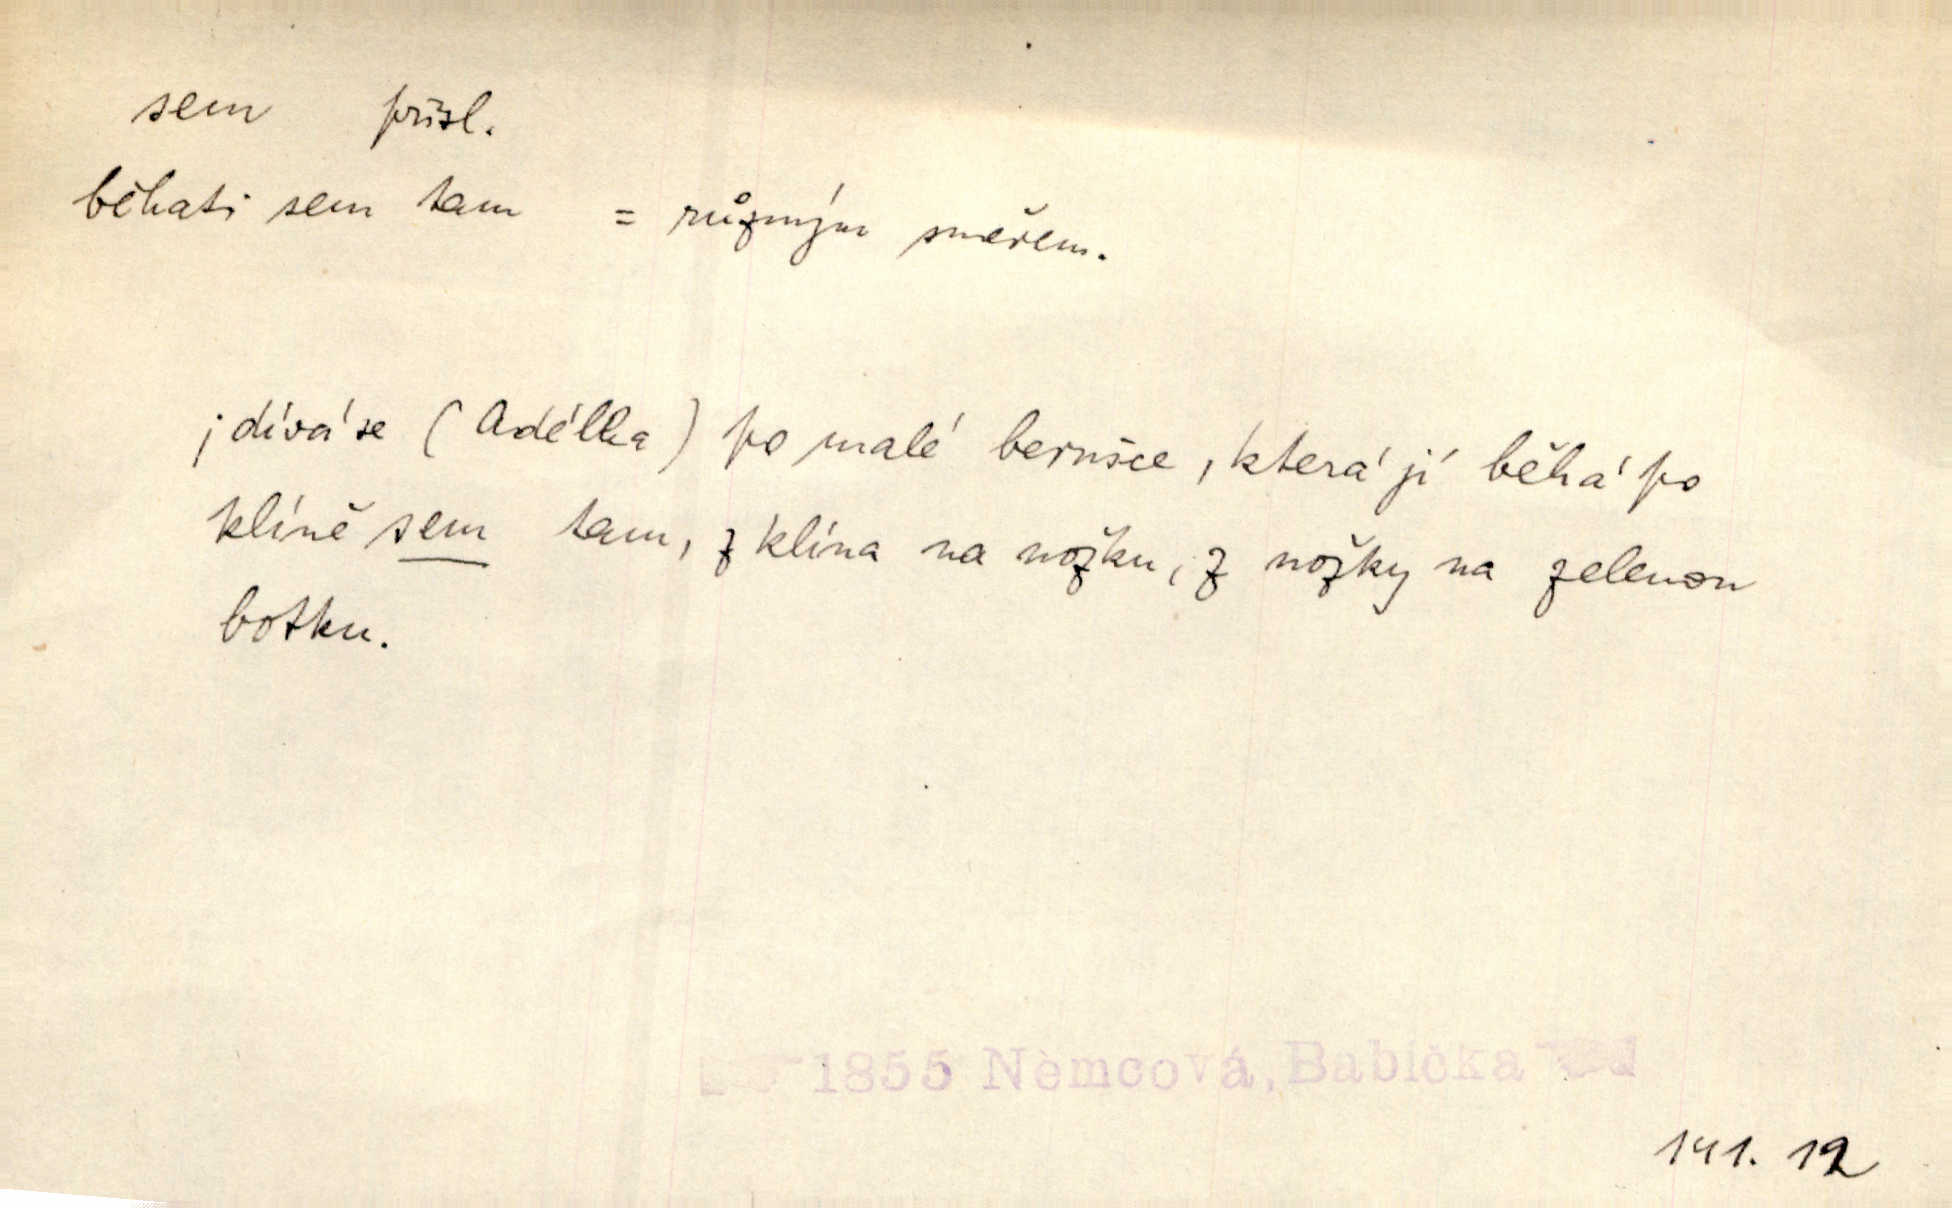 sem přísl.
běhati sem tam = různým směrem.
; dívá se (Adélka) po malé berušce, která jí běhá po
klíně sem tam, z klína na nožku, z nožky na zelenou
botku.
1855 Němcová, Babička
141. 12